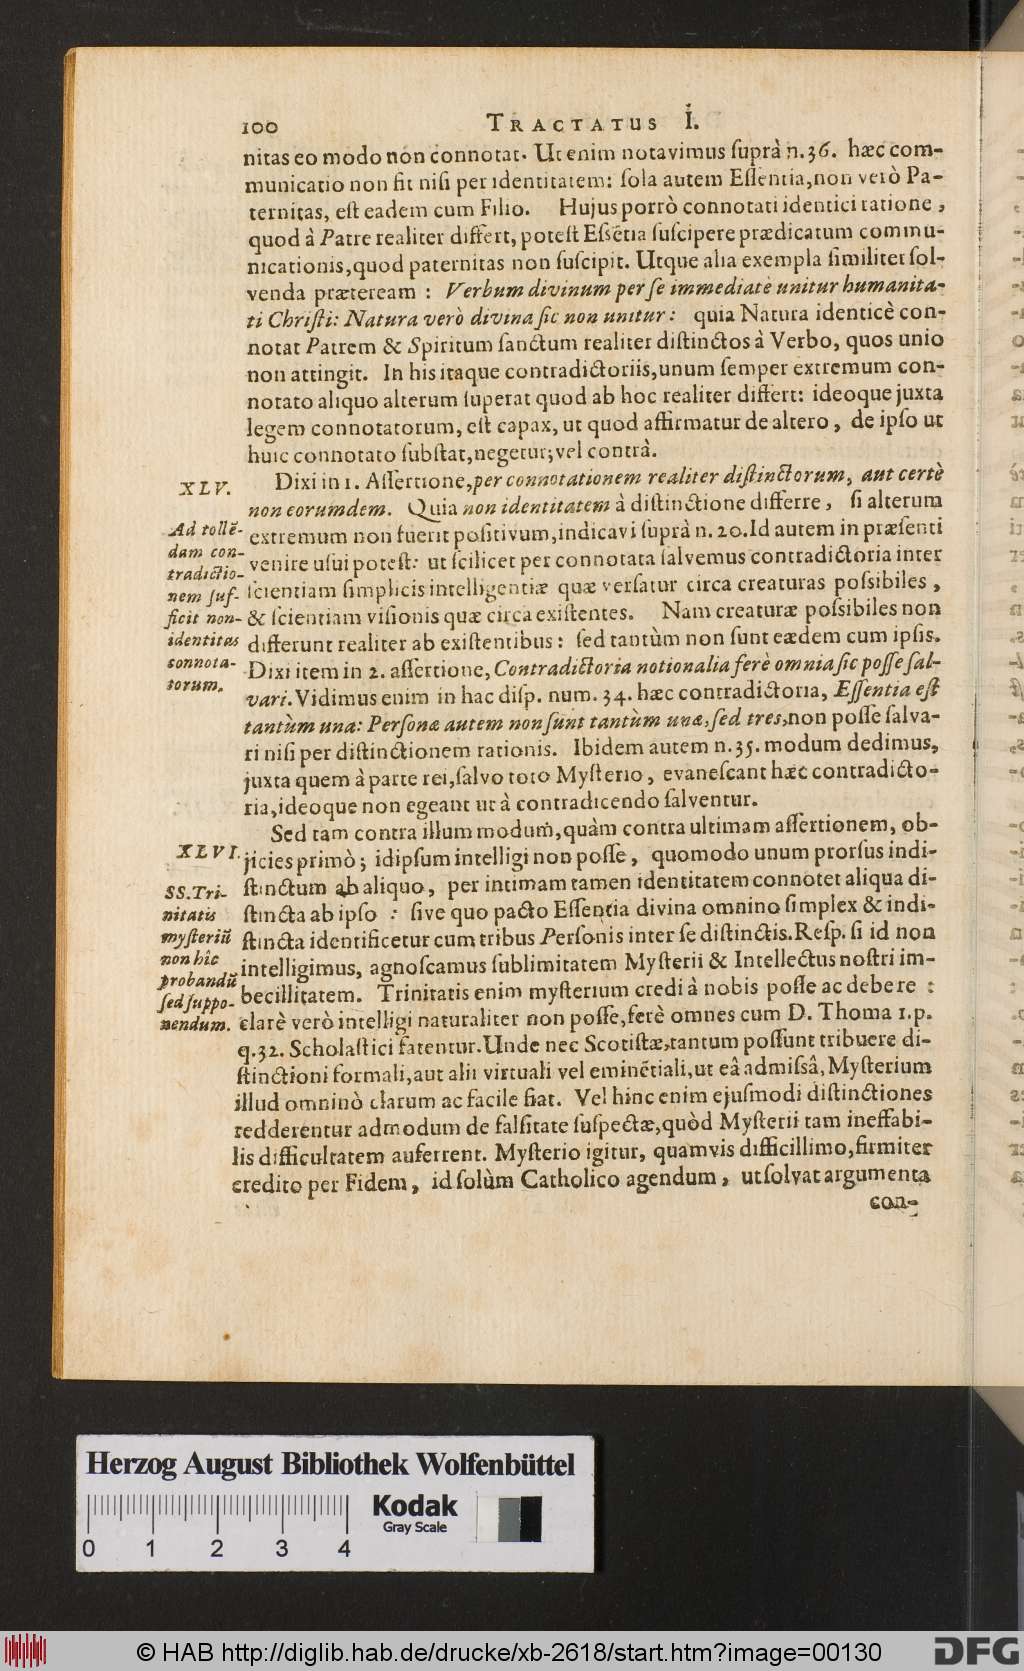 100 TRACTATUS I.
nitas eo modo non connotat. Ut enim notavimus suprà n. 36. hæc com-
municatio non fit nisi per identitatem: sola autem Essentia, non verò Pa-
ternitas, est eadem cum Filio. Hujus porrò connotati identici ratione,
quod à Patre realiter differt, potest Essẽtia suscipere prædicatum commu-
nicationis, quod paternitas non suscipit. Utque alia exempla similiter sol-
venda præteream: Verbum divinum per se immediatè unitur humanita-
ti Christi: Natura verò divina sic non unitur: quia Natura identicè con-
notat Patrem & Spiritum sanctum realiter distinctos à Verbo, quos unio
non attingit. In his itaque contradictoriis, unum semper extremum con-
notato aliquo alterum superat quod ab hoc realiter differt: ideoque juxta
legem connotatorum, est capax, ut quod affirmatur de altero, de ipso ut
huic connotato substat, negetur; vel contrà.
XLV.
Ad tollẽ-
dam con-
tradictio-
nem suf-
ficit non-
identitas
connota-
torum.
Dixi in 1. Assertione, per connotationem realiter distinctorum, aut certè
non eorumdem. Quia non identitatem à distinctione differre, si alterum
extremum non fuerit positivum, indicavi suprà n. 20. Id autem in præsenti
venire usui potest: ut scilicet per connotata salvemus contradictoria inter
scientiam simplicis intelligentiæ quæ versatur circa creaturas possibiles,
& scientiam visionis quæ circa existentes. Nam creaturæ possibiles non
differunt realiter ab existentibus: sed tantùm non sunt eædem cum ipsis.
Dixi item in 2. assertione, Contradictoria notionalia ferè omnia sic posse sal-
vari. Vidimus enim in hac disp. num. 34. hæc contradictoria, Essentia est
tantùm una: Personæ autem non sunt tantùm unæ, sed tres, non posse salva-
ri nisi per distinctionem rationis. Ibidem autem n. 35. modum dedimus,
juxta quem à parte rei, salvo toto Mysterio, evanescant hæc contradicto-
ria, ideoque non egeant ut à contradicendo salventur.
XLVI.
SS. Tri-
nitatis
mysteriũ
non hîc
probandũ
sed suppo-
nendum.
Sed tam contra illum modum, quàm contra ultimam assertionem, ob-
jicies primò; idipsum intelligi non posse, quomodo unum prorsus indi-
stinctum ab aliquo, per intimam tamen identitatem connotet aliqua di-
stincta ab ipso: sive quo pacto Essentia divina omnino simplex & indi-
stincta identificetur cum tribus Personis inter se distinctis. Resp. si id non
intelligimus, agnoscamus sublimitatem Mysterii & Intellectus nostri im-
becillitatem. Trinitatis enim mysterium credi à nobis posse ac debere:
clarè verò intelligi naturaliter non posse, ferè omnes cum D. Thoma 1. p.
q. 32. Scholastici fatentur. Unde nec Scotistæ, tantum possunt tribuere di-
stinctioni formali, aut alii virtuali vel eminẽtiali, ut eâ admissâ, Mysterium
illud omninò clarum ac facile fiat. Vel hinc enim ejusmodi distinctiones
redderentur admodum de falsitate suspectæ, quòd Mysterii tam ineffabi-
lis difficultatem auferrent. Mysterio igitur, quamvis difficillimo, firmiter
credito per Fidem, id solùm Catholico agendum, ut solvat argumenta
con-
Herzog August Bibliothek Wolfenbüttel
Kodak
Gray Scale
0 1 2 3 4
© HAB http://diglib.hab.de/drucke/xb-2618/start.htm?image=00130
DFG